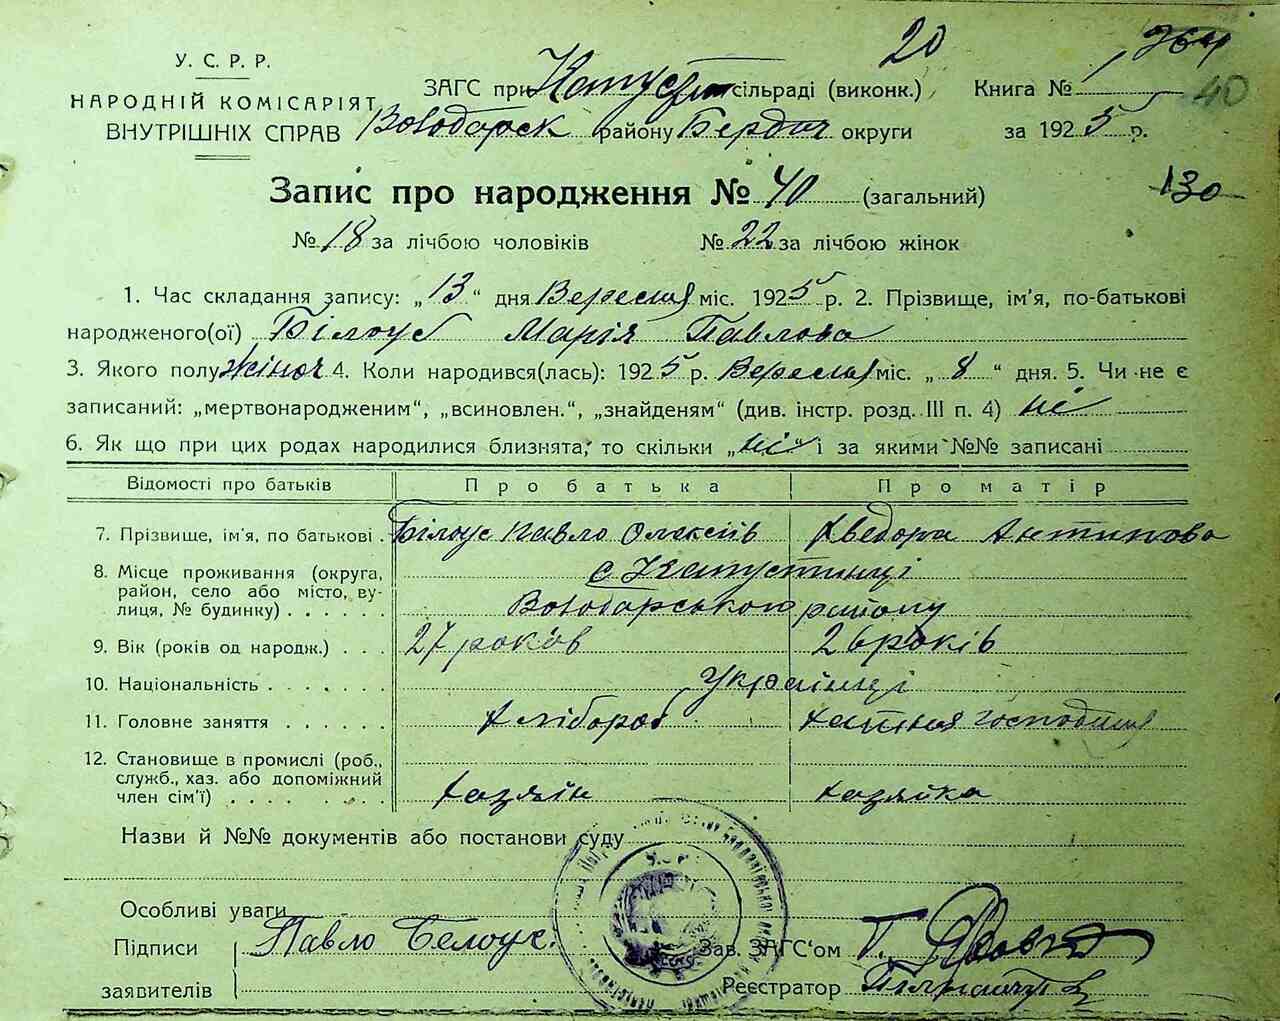 20
364
У. С. Р. Р.
НАРОДНІЙ КОМІСАРІЯТ
ВНУТРІШНІХ СПРАВ
ЗАГС при Капуст сільраді (виконк.) Книга № 1
40
Володарск району Бердич округи за 1925 р.
Запис про народження № 40 (загальний)
130
№ 18 за лічбою чоловіків № 22 за лічбою жінок
1. Час складання запису: „13“ дня Вересня міс. 1925 р. 2. Прізвище, ім'я, по-батькові
народженого(ої) Білоус Марія Павлова
3. Якого полу жіноч 4. Коли народився(лась): 1925 р. Вересня міс. „8“ дня. 5. Чи не є
записаний: „мертвонародженим“, „всиновлен.“, „знайденям“ (див. інстр. розд. III п. 4) ні
6. Як що при цих родах народилися близнята, то скільки „ні“ і за якими №№ записані
Відомості про батьків Про батька Про матір
7. Прізвище, ім'я, по батькові . Білоус Павло Олексіів Хведора Антипова
8. Місце проживання (округа, с Капустинці
район, село або місто, ву-
лиця, № будинку) . . . . . Володарського району
9. Вік (років од народж.) . . . 27 років 26 років
10. Національність . . . . . . . Українці
11. Головне заняття . . . . . . Хлібороб хатня господиня
12. Становище в промислі (роб.,
служб., хаз. або допоміжний
член сім'ї) . . . . . . . . хазяін хазяйка
Назви й №№ документів або постанови суду
Особливі уваги
Підписи Павло Белоус. Зав. ЗАГС'ом Г.
заявителів Реєстратор
У.С.Р.